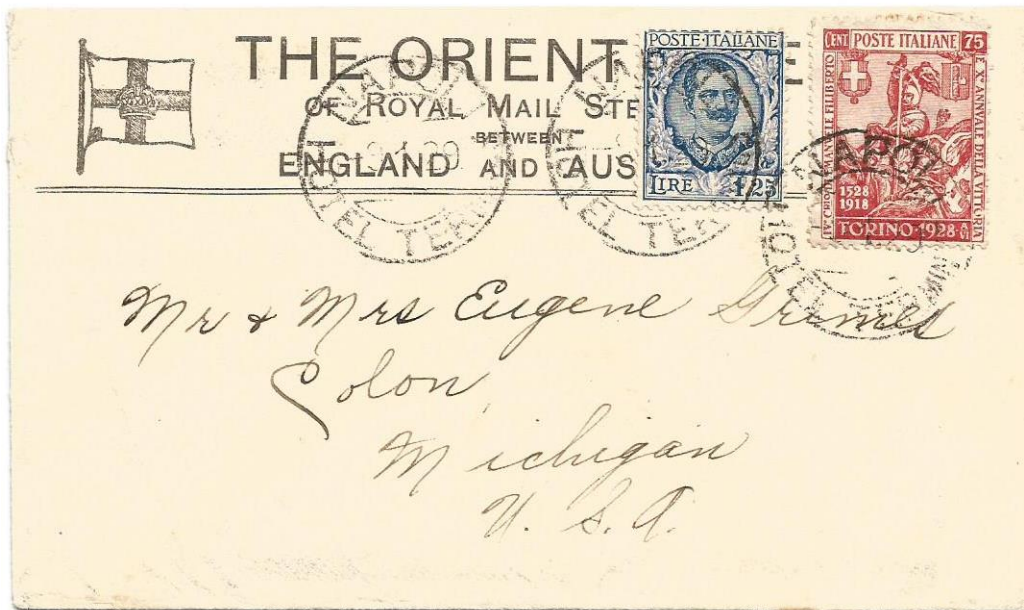 THE ORIENT
OF ROYAL MAIL STE
BETWEEN
ENGLAND AND AUS
POSTE ITALIANE
LIRE 1,25
CENT POSTE ITALIANE 75
IV° CENTENARIO EMANUELE FILIBERTO
E X° ANNUALE DELLA VITTORIA
1528
1918
TORINO·1928
NAPOLI
HOTEL TER
HOTEL TER
Mr & Mrs Eugene Grimes
Colon,
Michigan
U. S. A.